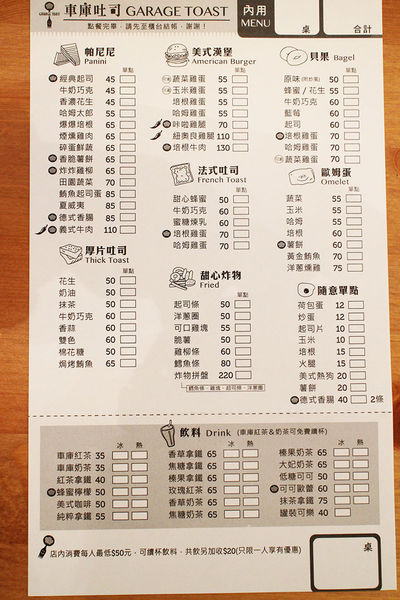 車庫吐司 GARAGE TOAST
點餐完畢，請先至櫃台結帳，謝謝！
內用
MENU
桌
合計
帕尼尼
Panini
單點
經典起司 45
牛奶巧克 45
香濃花生 45
哈姆太郎 55
爆爆培根 65
煙燻雞肉 65
碎蛋鮮蔬 65
香脆薯餅 65
炸炸雞柳 65
田園蔬菜 70
鮪魚起司蛋 85
夏威夷 85
德式香腸 85
義式牛肉 110
厚片吐司
Thick Toast
單點
花生 50
奶油 50
抹茶 50
牛奶巧克 60
香蒜 60
雙色 60
棉花糖 50
焗烤鮪魚 65
美式漢堡
American Burger
單點
蔬菜雞蛋 55
玉米雞蛋 55
培根雞蛋 55
哈姆雞蛋 55
咔啦雞腿 70
紐奧良雞腿 110
培根牛肉 130
法式吐司
French Toast
單點
甜心蜂蜜 50
牛奶巧克 60
蜜糖煉乳 60
培根雞蛋 70
哈姆雞蛋 70
甜心炸物
Fried
單點
起司條 50
洋蔥圈 50
可口雞塊 55
脆薯 50
雞柳條 60
鱈魚條 80
炸物拼盤 220
鱈魚條、雞塊、起司條、洋蔥圈
貝果 Bagel
單點
原味(附抄果) 50
蜂蜜/花生 55
牛奶巧克 60
藍莓 60
起司 60
培根雞蛋 70
哈姆雞蛋 70
蔬菜雞蛋 70
歐姆蛋
Omelet
單點
蔬菜 55
玉米 55
哈姆 55
培根 55
薯餅 60
黃金鮪魚 70
洋蔥燻雞 75
隨意單點
單點
荷包蛋 12
炒蛋 12
起司片 10
玉米 10
培根 15
火腿 15
美式熱狗 20
薯餅 20
德式香腸 40 2條
飲料 Drink (車庫紅茶&奶茶可免費續杯)
冰 熱
車庫紅茶 35
車庫奶茶 35
紅茶拿鐵 40
蜂蜜檸檬 50
美式咖啡 50
純粹拿鐵 55
冰 熱
香草拿鐵 65
焦糖拿鐵 65
榛果拿鐵 65
玫瑰紅茶 65
香草奶茶 65
焦糖奶茶 65
冰 熱
榛果奶茶 65
大妃奶茶 65
低糖可可 50
可可歐蕾 60
抹茶拿鐵 75
罐裝可樂 40
店內消費每人最低$50元，可續杯飲料，共飲另加收$20(只限一人享有優惠)
桌